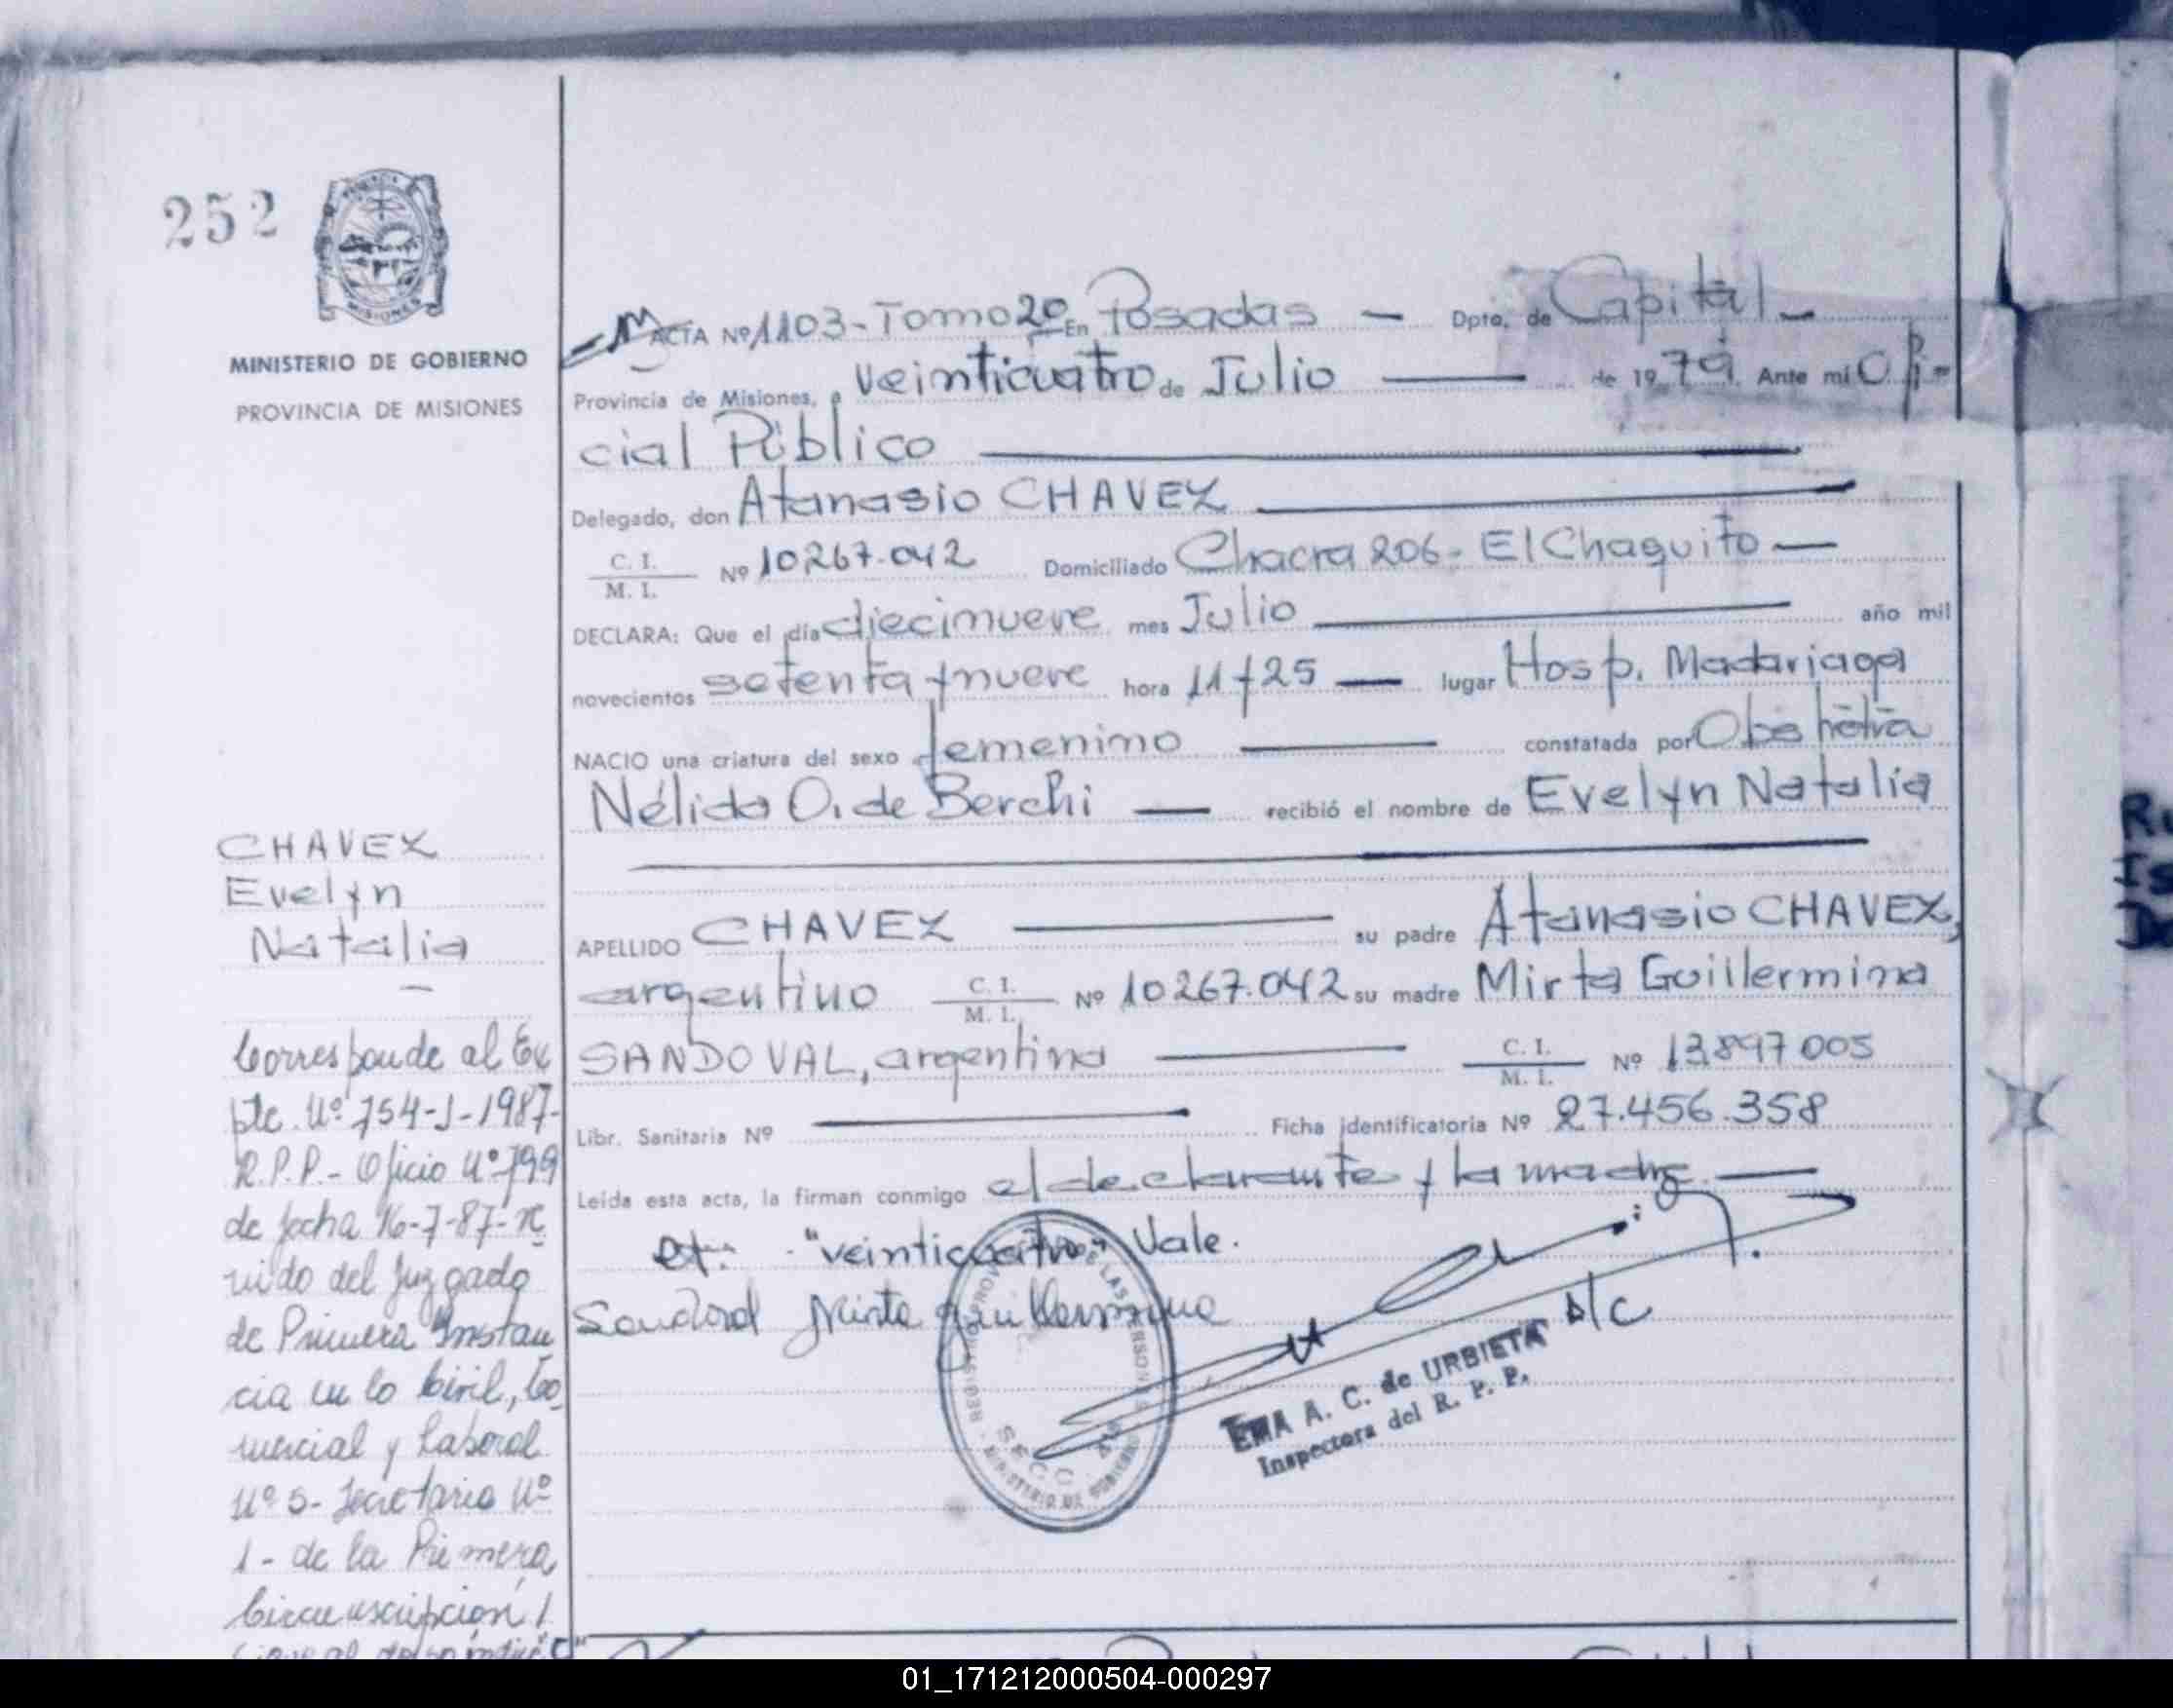 252
MISIONES
MINISTERIO DE GOBIERNO
PROVINCIA DE MISIONES
ACTA Nº 1103-Tomo 2º En Posadas — Dpto. de Capital —
Provincia de Misiones, a veinticuatro de Julio — de 1979. Ante mi Ofi-
cial Público
Delegado, don Atanasio CHAVEZ
C. I.
M. I.
Nº 10267.042 Domiciliado Chacra 206- El Chaquito —
DECLARA: Que el día diecinueve mes Julio — año mil
novecientos setenta y nueve hora 11 y 25 — lugar Hosp. Madariaga
NACIO una criatura del sexo femenino — constatada por Obstetra
Nélida O. de Berchi — recibió el nombre de Evelyn Natalia
APELLIDO CHAVEZ — su padre Atanasio CHAVEZ,
argentino C. I. M. I. Nº 10267.042 su madre Mirta Guillermina
SANDOVAL, argentina — C. I. M. I. Nº 13.897 005
Libr. Sanitaria Nº — Ficha identificatoria Nº 27.456.358
Leída esta acta, la firman conmigo el declarante y la madre. —
et: "veinticuatro" Vale.
Sandoval Mirta Guillermina
A/C
EMA A. C. de URBIETA
Inspectora del R. P. P.
CHAVEZ
Evelyn
Natalia
—
Corresponde al Ex
pte. Nº 754-J-1987-
R.P.P.- Oficio Nº 799
de fecha 16-7-87- re
nido del Juzgado
de Primera Instan
cia en lo Civil, Co
mercial y Laboral
Nº 5- Secretaria Nº
1- de la Primera
Circunscripción J.
01_171212000504-000297